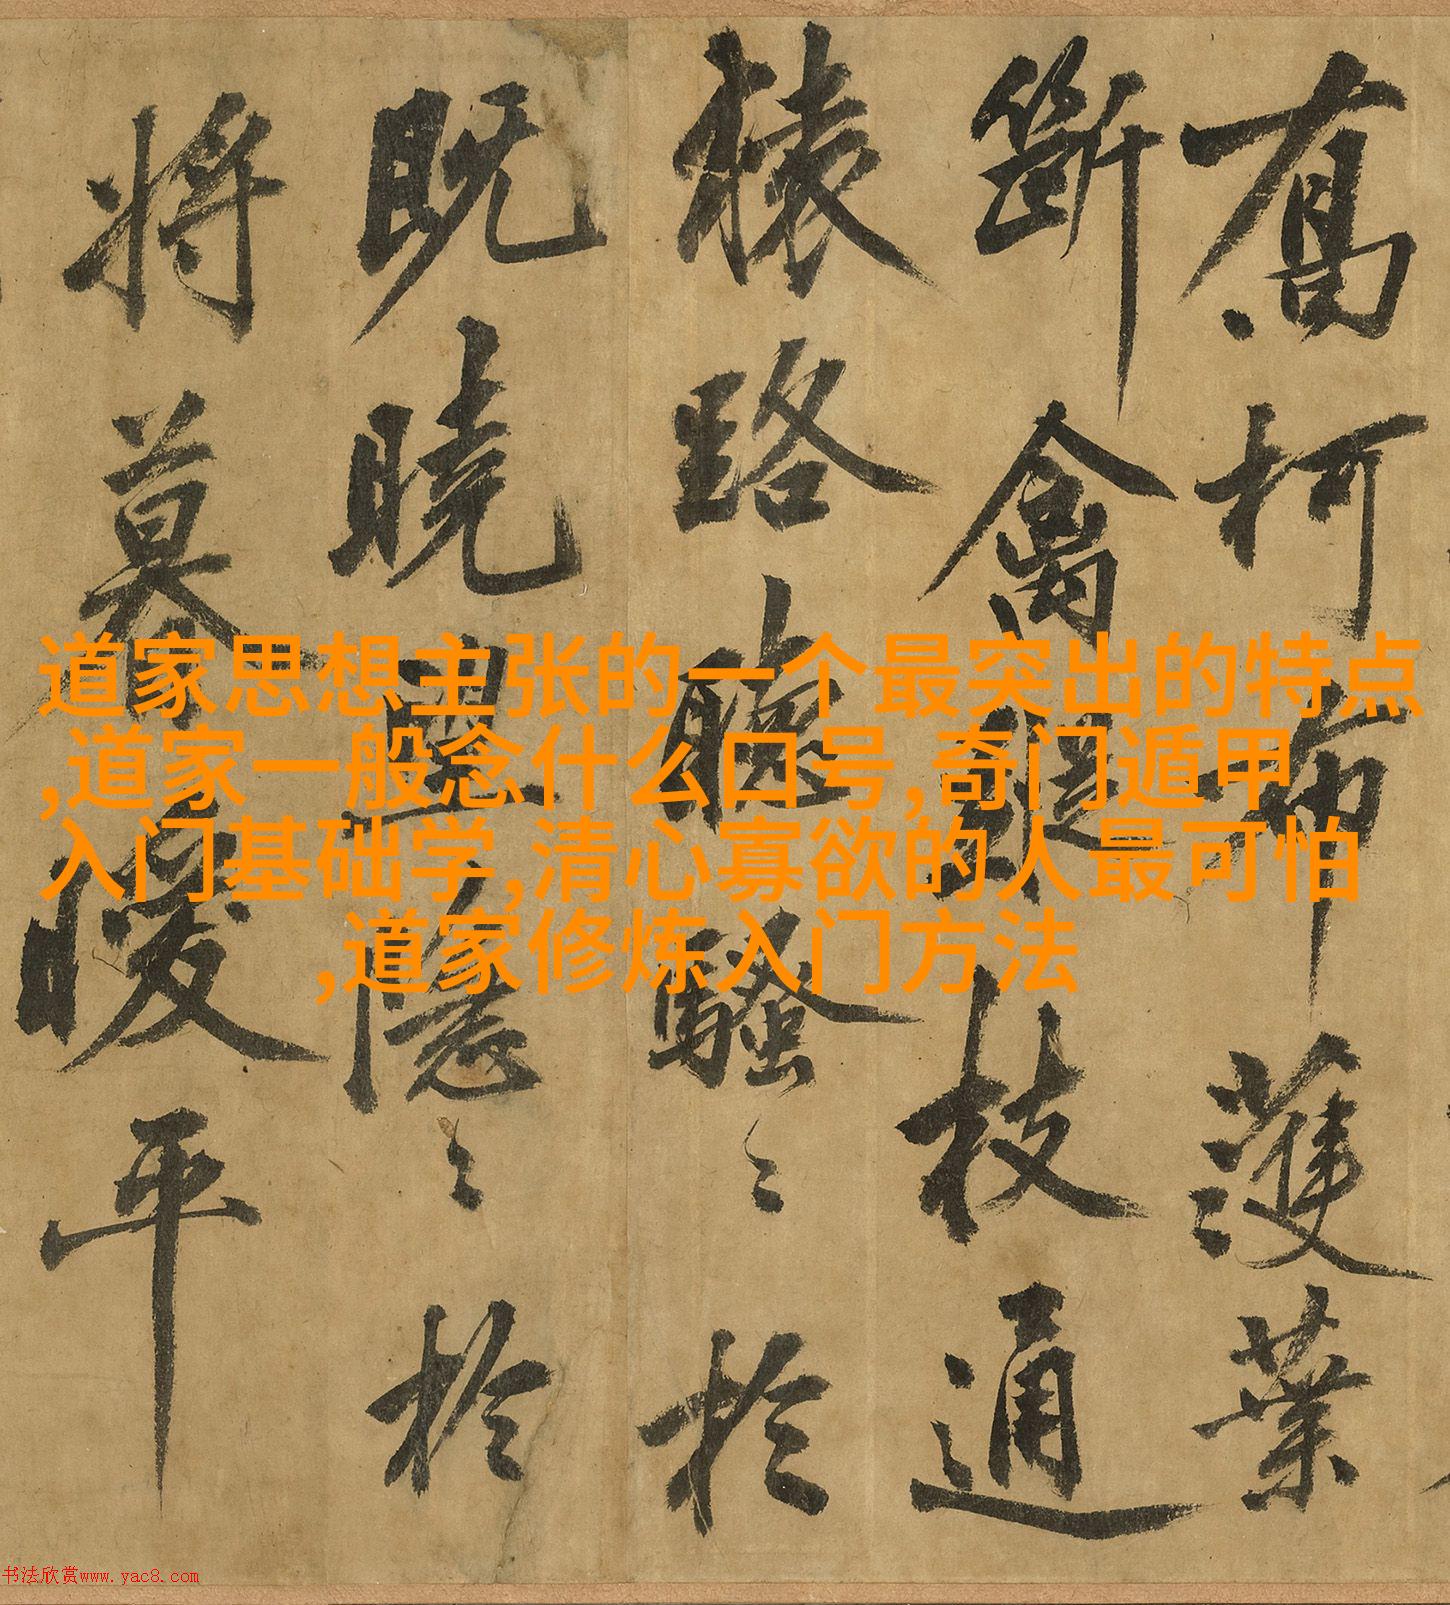 喬柯布濩葉
斷禽枝通
猿路聽騷〻於
既曉隱〻於
將暮暖平
道家思想主张的一个最突出的特点
,道家一般念什么口号,奇门遁甲
入门基础学,清心寡欲的人最可怕
,道家修炼入门方法
书法欣赏www.yac8.com